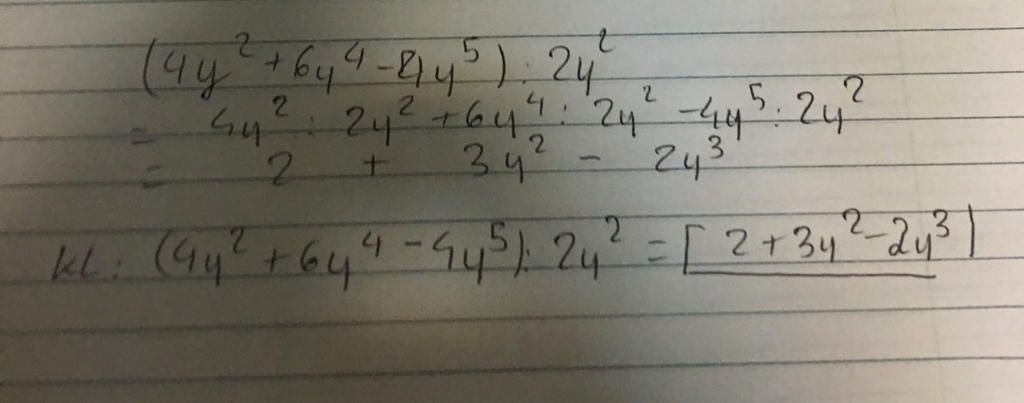 (4y² + 6y⁴ - 4y⁵) : 2y²
= 4y² : 2y² + 6y⁴ : 2y² - 4y⁵ : 2y²
= 2 + 3y² - 2y³
KL : (4y² + 6y⁴ - 4y⁵) : 2y² = [ 2 + 3y² - 2y³ ]